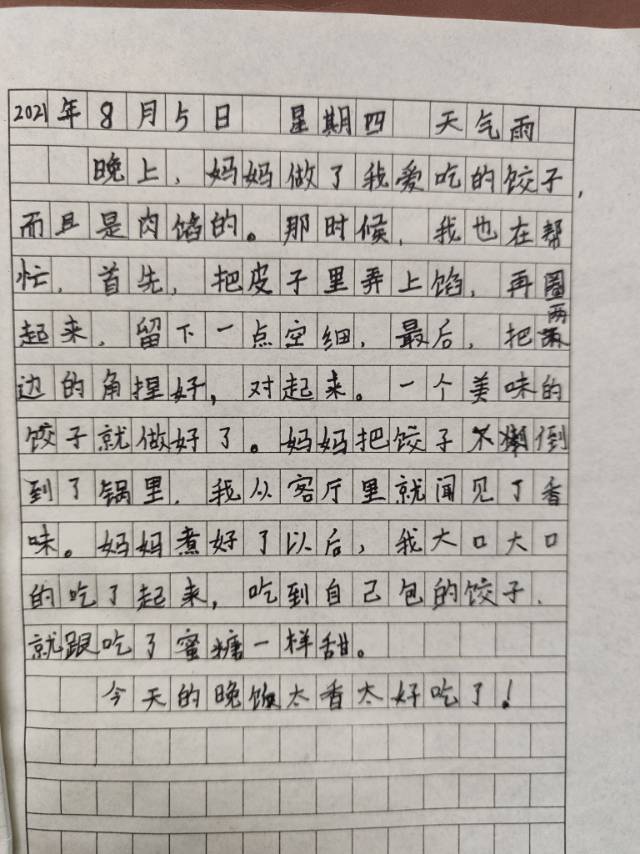 2021年8月5日 星期四 天气雨
晚上，妈妈做了我爱吃的饺子，
而且是肉馅的。那时候，我也在帮
忙，首先，把皮子里弄上馅，再圈
起来，留下一点空细，最后，把两
边的角捏好，对起来。一个美味的
饺子就做好了。妈妈把饺子倒
到了锅里，我从客厅里就闻见了香
味。妈妈煮好了以后，我大口大口
的吃了起来，吃到自己包的饺子，
就跟吃了蜜糖一样甜。
今天的晚饭太香太好吃了！